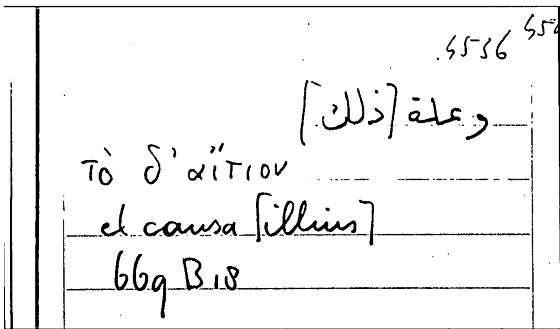 .5536
وعلة [ذلك]
τὸ δ' αἴτιον
et causa [illius]
669 B 18